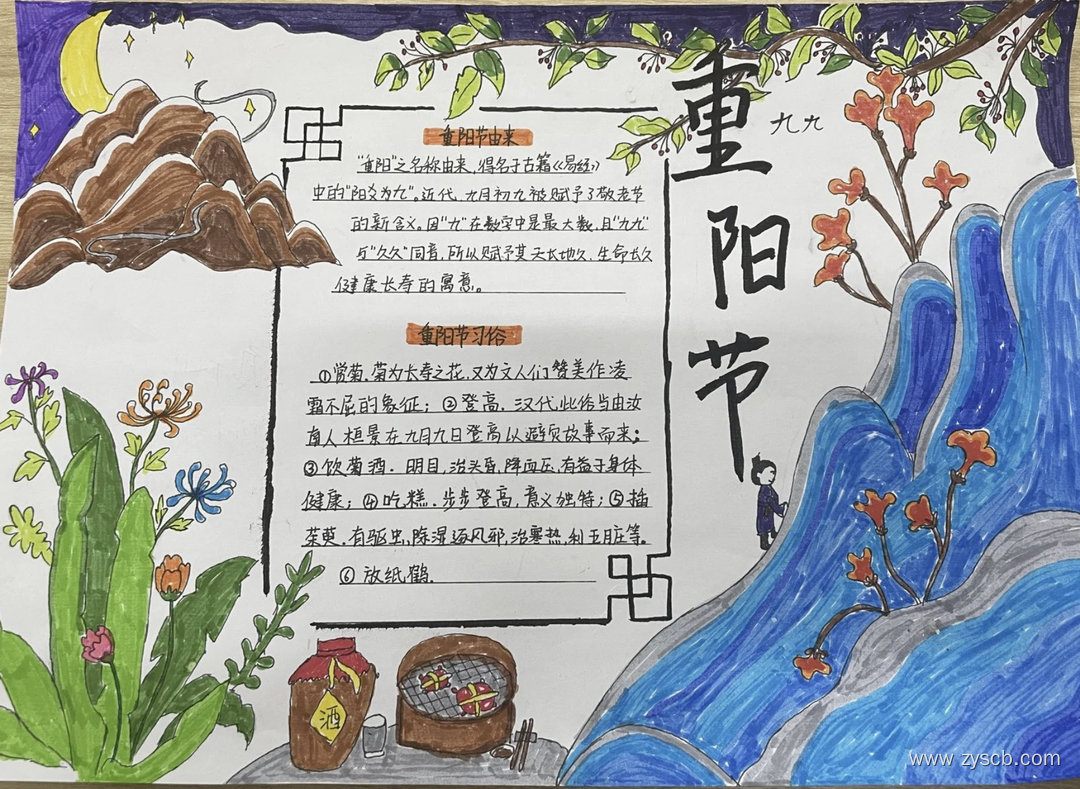 重阳节
九九
重阳节由来
“重阳”之名称由来,得名于古籍《易经》
中的“阳爻为九”。近代,九月初九被赋予了敬老节
的新含义。因“九”在数字中是最大数,且“九九”
与“久久”同音,所以赋予其天长地久、生命长久
健康长寿的寓意。
重阳节习俗
①赏菊.菊为长寿之花,又为文人们赞美作凌
霜不屈的象征;②登高.汉代此俗当由汝
南人桓景在九月九日登高以避灾故事而来;
③饮菊酒.明目,治头昏,降血压,有益于身体
健康;④吃糕.步步登高,意义独特;⑤插
茱萸.有驱虫,除湿逐风邪,治寒热,利五脏等。
⑥放纸鹞.
酒
www.zyscb.com